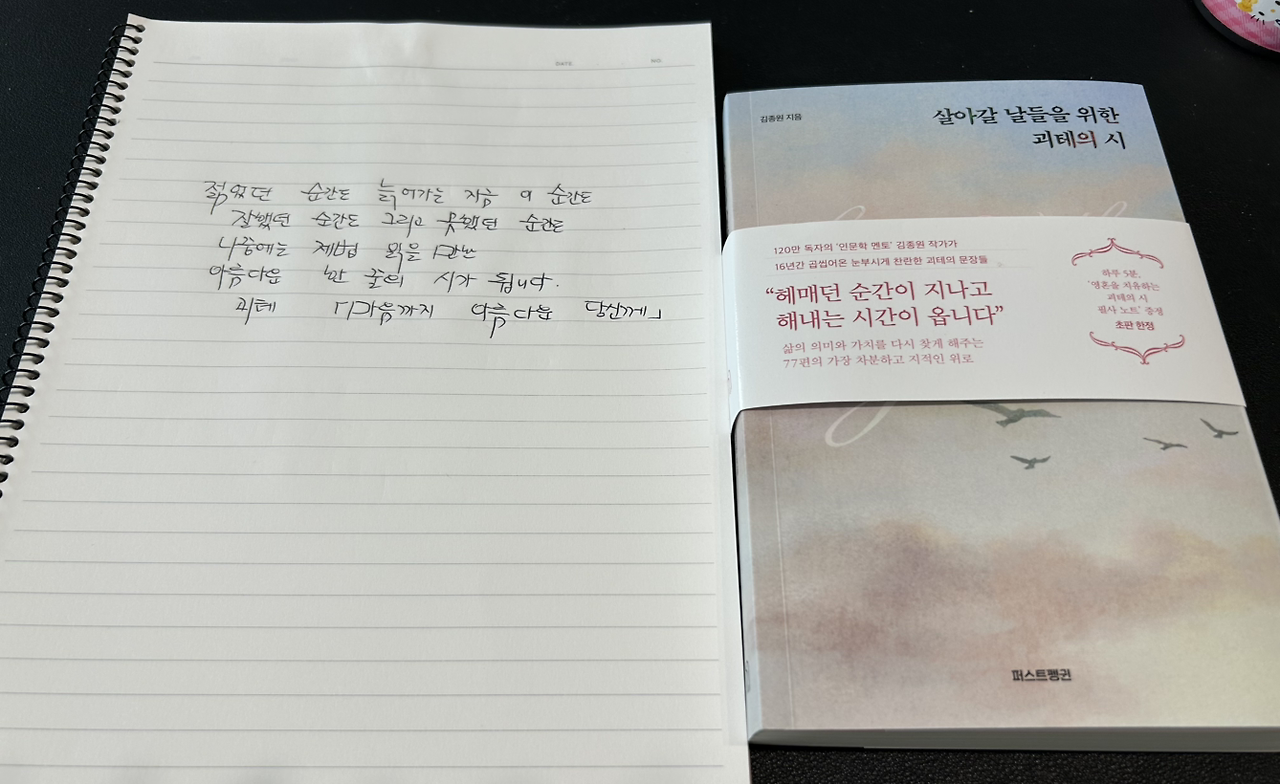 DATE.
NO.
젊었던 순간도 늙어가는 지금 이 순간도
잘했던 순간도 그리고 못했던 순간도
나중에는 제법 을 만난
아름다운 한 줄의 시가 됩니다.
괴테 「마음까지 아름다운 당신께」
김종원 지음
살아갈 날들을 위한
괴테의 시
120만 독자의 '인문학 멘토' 김종원 작가가
16년간 곱씹어온 눈부시게 찬란한 괴테의 문장들
“헤매던 순간이 지나고
해내는 시간이 옵니다”
삶의 의미와 가치를 다시 찾게 해주는
77편의 가장 차분하고 지적인 위로
하루 5분,
'영혼을 치유하는
괴테의 시
필사 노트' 증정
초판 한정
퍼스트펭귄